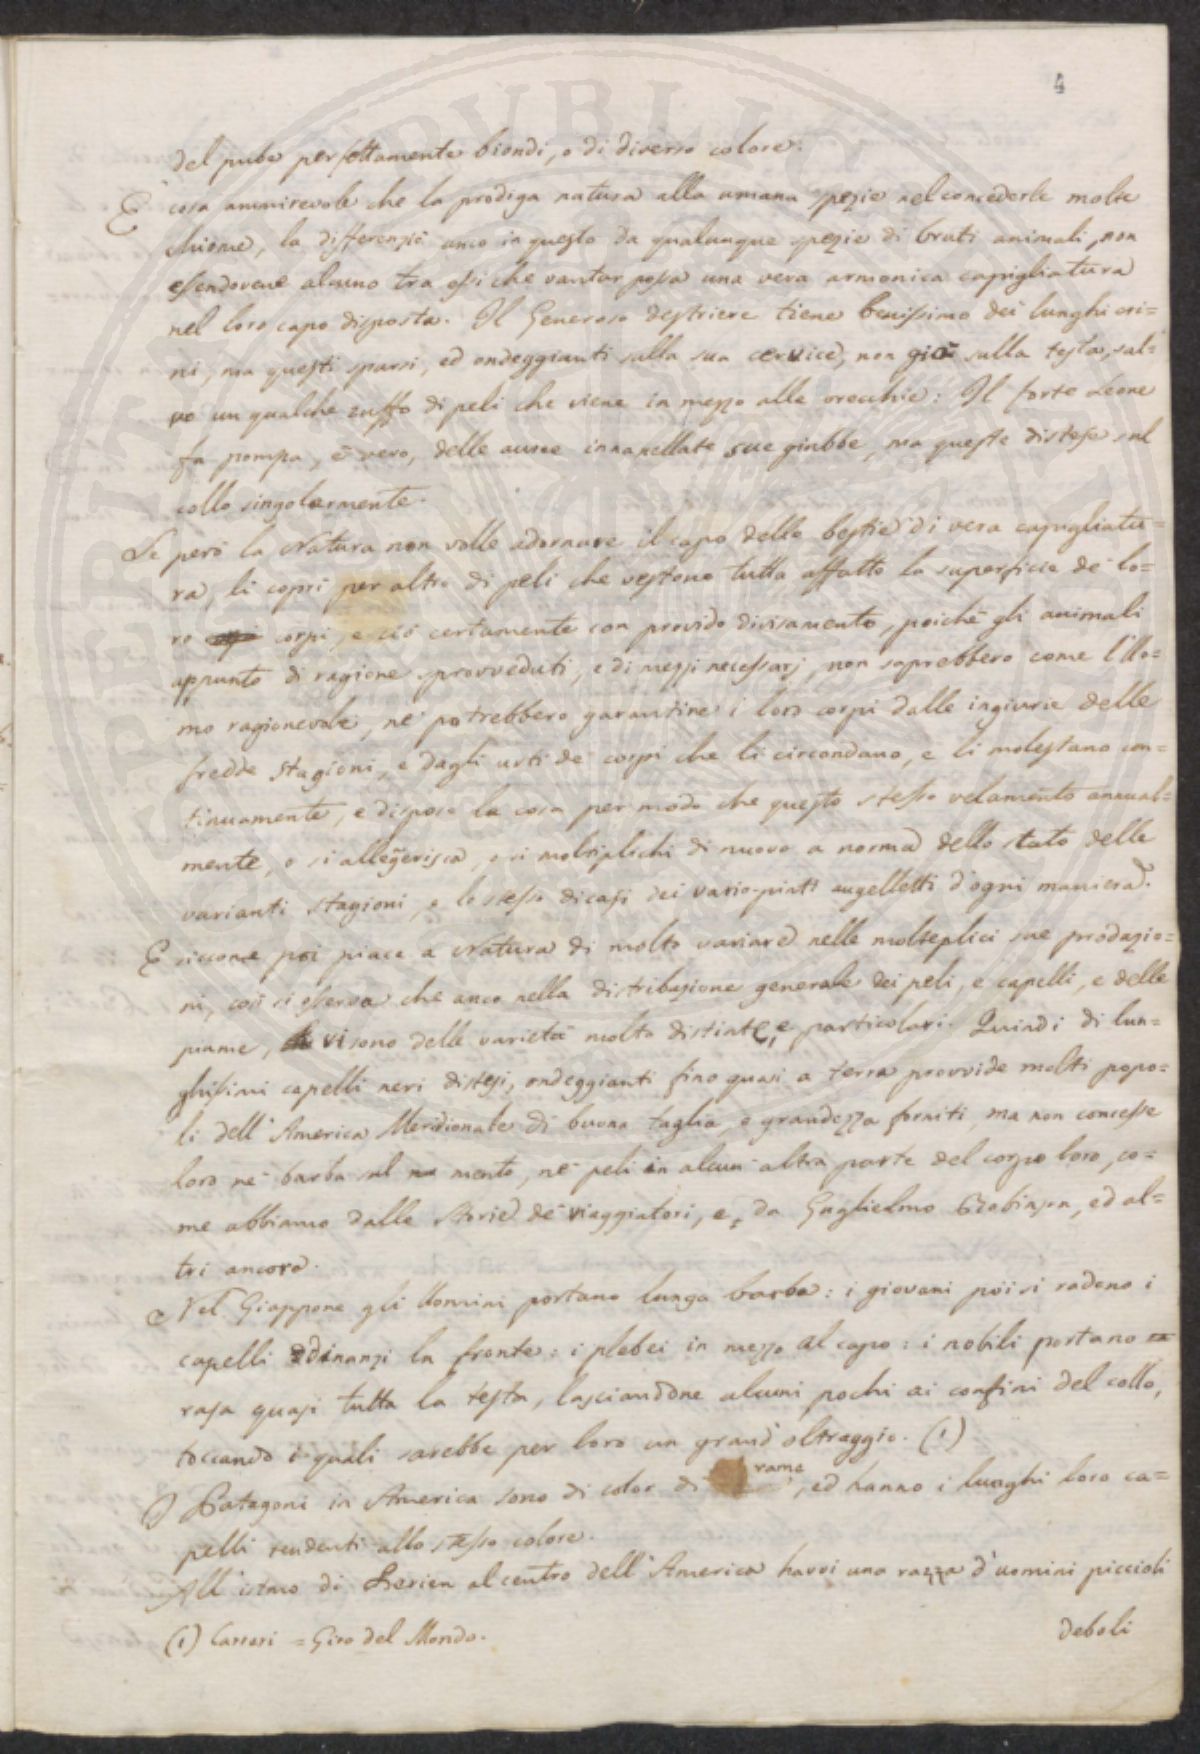 4
del pube perfettamente biondi, o di diverso colore.
È cosa ammirevole che la prodiga natura alla umana spezie nel concederle molte
chiome, la differenziò anco in questo da qualunque spezie di bruti animali, non
essendovene alcuno tra essi che vantar possa una vera armonica capigliatura
nel loro capo disposta. Il Generoso destriere tiene benissimo dei lunghi cri=
ni, ma questi sparsi, ed ondeggianti sulla sua cervice, non già sulla testa, sal=
vo un qualche zuffo di peli che viene in mezzo alle orecchie: Il forte Leone
fa pompa, è vero, delle auree innanellate sue giubbe, ma queste distese sul
collo singolarmente.
Se però la Natura non volle adornare il capo delle bestie di vera capigliatu=
ra, li coprì per altro di peli che vestono tutta affatto la superficie de' lo=
ro corpi, e ciò certamente con provido divisamento, poichè gli animali
appunto di ragione sprovveduti, e di mezzi necessarj, non saprebbero come l'Uo=
mo ragionevole, nè potrebbero garantire i loro corpi dalle ingiurie delle
fredde stagioni, e dagli urti de' corpi che li circondano, e li molestano con=
tinuamente, e dispose la cosa per modo che questo stesso velamento annual=
mente, o si allegerisca, o si moltiplichi di nuovo a norma dello stato delle
varianti stagioni, e lo stesso dicasi dei vario-pinti augelletti d'ogni maniera.
E siccome poi piace a Natura di molto variare nelle molteplici sue produzio=
ni, così si osserva che anco nella distribuzione generale dei peli, e capelli, e delle
piume, vi sono delle varietà molto distinte, e particolari. Quindi di lun=
ghissimi capelli neri distesi, ondeggianti fino quasi a terra provvide molti popo=
li dell'America Meridionale di buona taglia, e grandezza forniti, ma non concesse
loro nè barba sul mento, nè peli in alcun' altra parte del corpo loro, co=
me abbiamo dalle Storie de' viaggiatori, e, da Guglielmo Robinson, ed al=
tri ancora.
Nel Giappone gli Uomini portano lunga barba: i giovani poi si radono i
capelli dinanzi la fronte: i plebei in mezzo al capo: i nobili portano
rasa quasi tutta la testa, lasciandone alcuni pochi ai confini del collo,
toccando i quali sarebbe per loro un grand' oltraggio. (1)
I Patagoni in America sono di color di rame, ed hanno i lunghi loro ca=
pelli tendenti allo stesso colore.
All'istmo di Darien al centro dell'America havvi una razza d'uomini piccioli
(1) Carreri = Giro del Mondo.
deboli